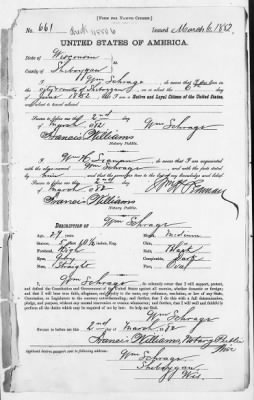 [FORM FOR NATIVE CITIZEN.]
No. 661 Issued March 6, 1882
UNITED STATES OF AMERICA.
State of Wisconsin
County of Sheboygan
I, Wm Schrage, do swear that I was born in the
of Sheboygan, on the 6th
June 1852, that I am a Native and Loyal Citizen of the United States,
and about to travel abroad.
Sworn to before me this 2nd day
of March 1882 Wm Schrage
Francis Williams
Notary Public.
I, Wm H. , do swear that I am acquainted
with the above named Wm Schrage and with the facts
to the best of my knowledge and belief.
Sworn to before me this 2nd day
of March 1882
Francis Williams
Notary Public.
DESCRIPTION OF Wm Schrage
Age, 29 years Mouth, Medium
Stature, 5 feet inches, Eng. Chin,
Forehead, High Hair, Black
Eyes, Complexion, Dark
Nose, Straight Face, Oval
I, Wm Schrage, do solemnly swear that I will support, protect,
and defend the Constitution and Government of the United States against all enemies, whether domestic or foreign;
and that I will bear true faith, allegiance, and loyalty to the same, any ordinance, resolution, or law of any State,
Convention, or Legislature to the contrary notwithstanding; and further, that I do this with a full determination,
pledge, and purpose, without any mental reservation or evasion whatsoever; and further, that I will well and faithfully
perform all the duties which may be required of me by law. So help me God.
Wm Schrage
Sworn to before me this 2nd day of March 1882
Francis Williams, Notary Public
Wis
Applicant desires passport sent to following address:
Wm Schrage
Sheboygan
Wis.